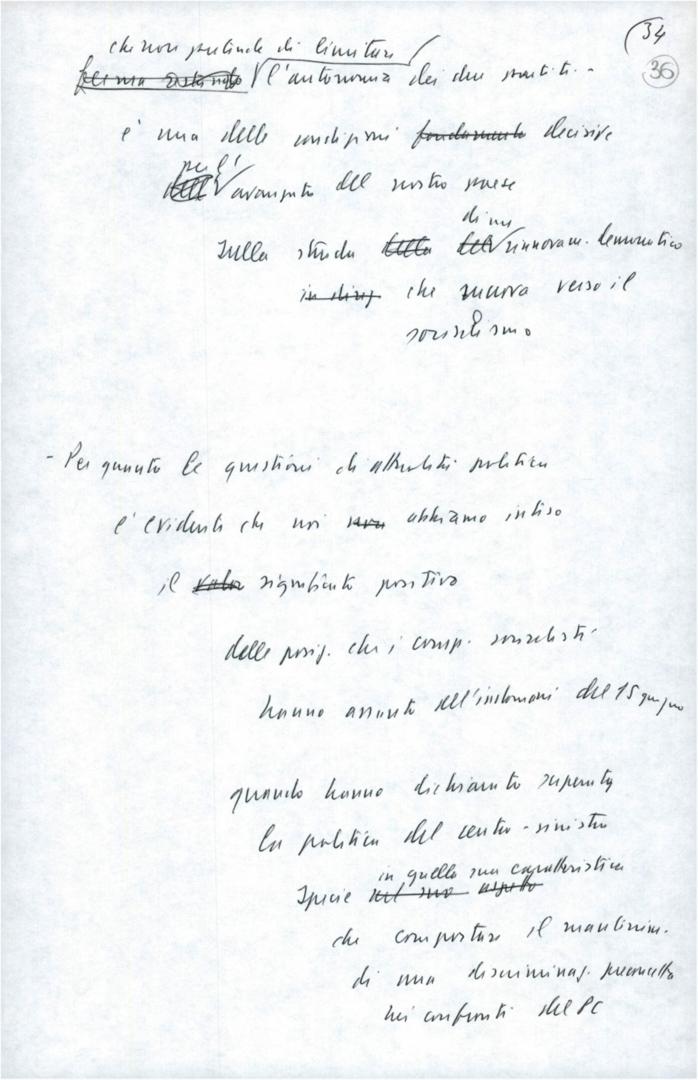 34
36
che non pretende di limitare
ferma restando l'autonomia dei due partiti. -
è una delle condizioni fondamentale decisive
per l'
dell avanzata del nostro paese
di un
sulla strada della del rinnovam. democratico
in direz che muova verso il
socialismo
- Per quanto le questioni di attualità politica
è evidente che noi abbiamo inteso
il valore significato positivo
delle posiz. che i comp. socialisti
hanno assunto all'indomani del 15 giugno
quando hanno dichiarato superata
la politica del centro-sinistra
in quella sua caratteristica
specie nel suo aspetto
che comportava il mantenim.
di una discriminaz. preconcetta
nei confronti del PC